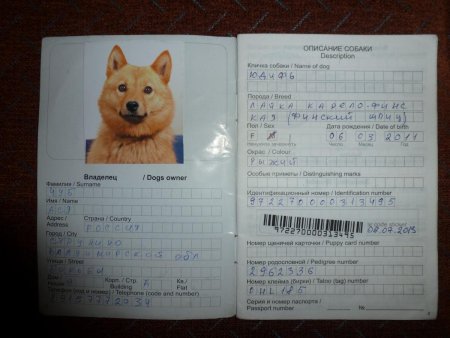 Владелец / Dogs owner
Фамилия / Surname
Имя / Name
АСЯ
Адрес / Страна / Country
Address РОССИЯ
Город / City
СТРУНИНО
ВЛАДИМИРСКОЙ ОБЛ
Улица / Street
Дом / Корп. / Стр. / Кв. /
House Building Flat
Телефон (код и номер) / Telephone (code and number)
ОПИСАНИЕ СОБАКИ
Description
Кличка собаки / Name of dog
ЮДИФЬ
Порода / Breed
ЛАЙКА КАРЕЛО-ФИНС
КАЯ (ФИНСКИЙ ШПИЦ)
Пол / Sex Дата рождения / Date of birth
F 06 03 2011
Ненужное зачеркнуть Число Месяц Год
Окрас / Colour
РЫЖИЙ
Особые приметы / Distinguishing marks
Идентификационный номер / Identification number
972270000313495
bar code sticker
972270000313495
Номер щенячей карточки / Puppy card number
Номер родословной / Pedigree number
2962336
Номер клейма (бирки) / Tatoo (tag) number
Серия и номер паспорта /
Passport number №